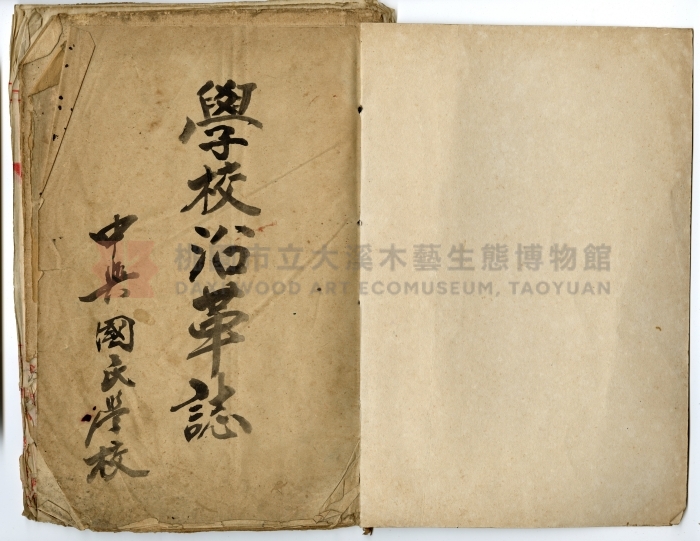 學校沿革誌
中興國民學校
桃園市立大溪木藝生態博物館
DAXI WOOD ART ECOMUSEUM, TAOYUAN